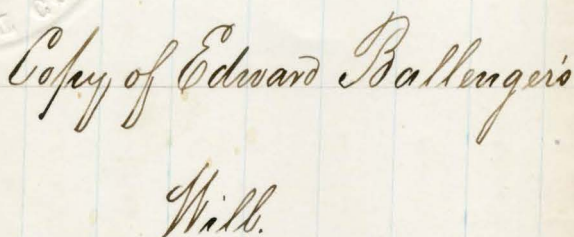 Copy of Edward Ballenger's
Will.